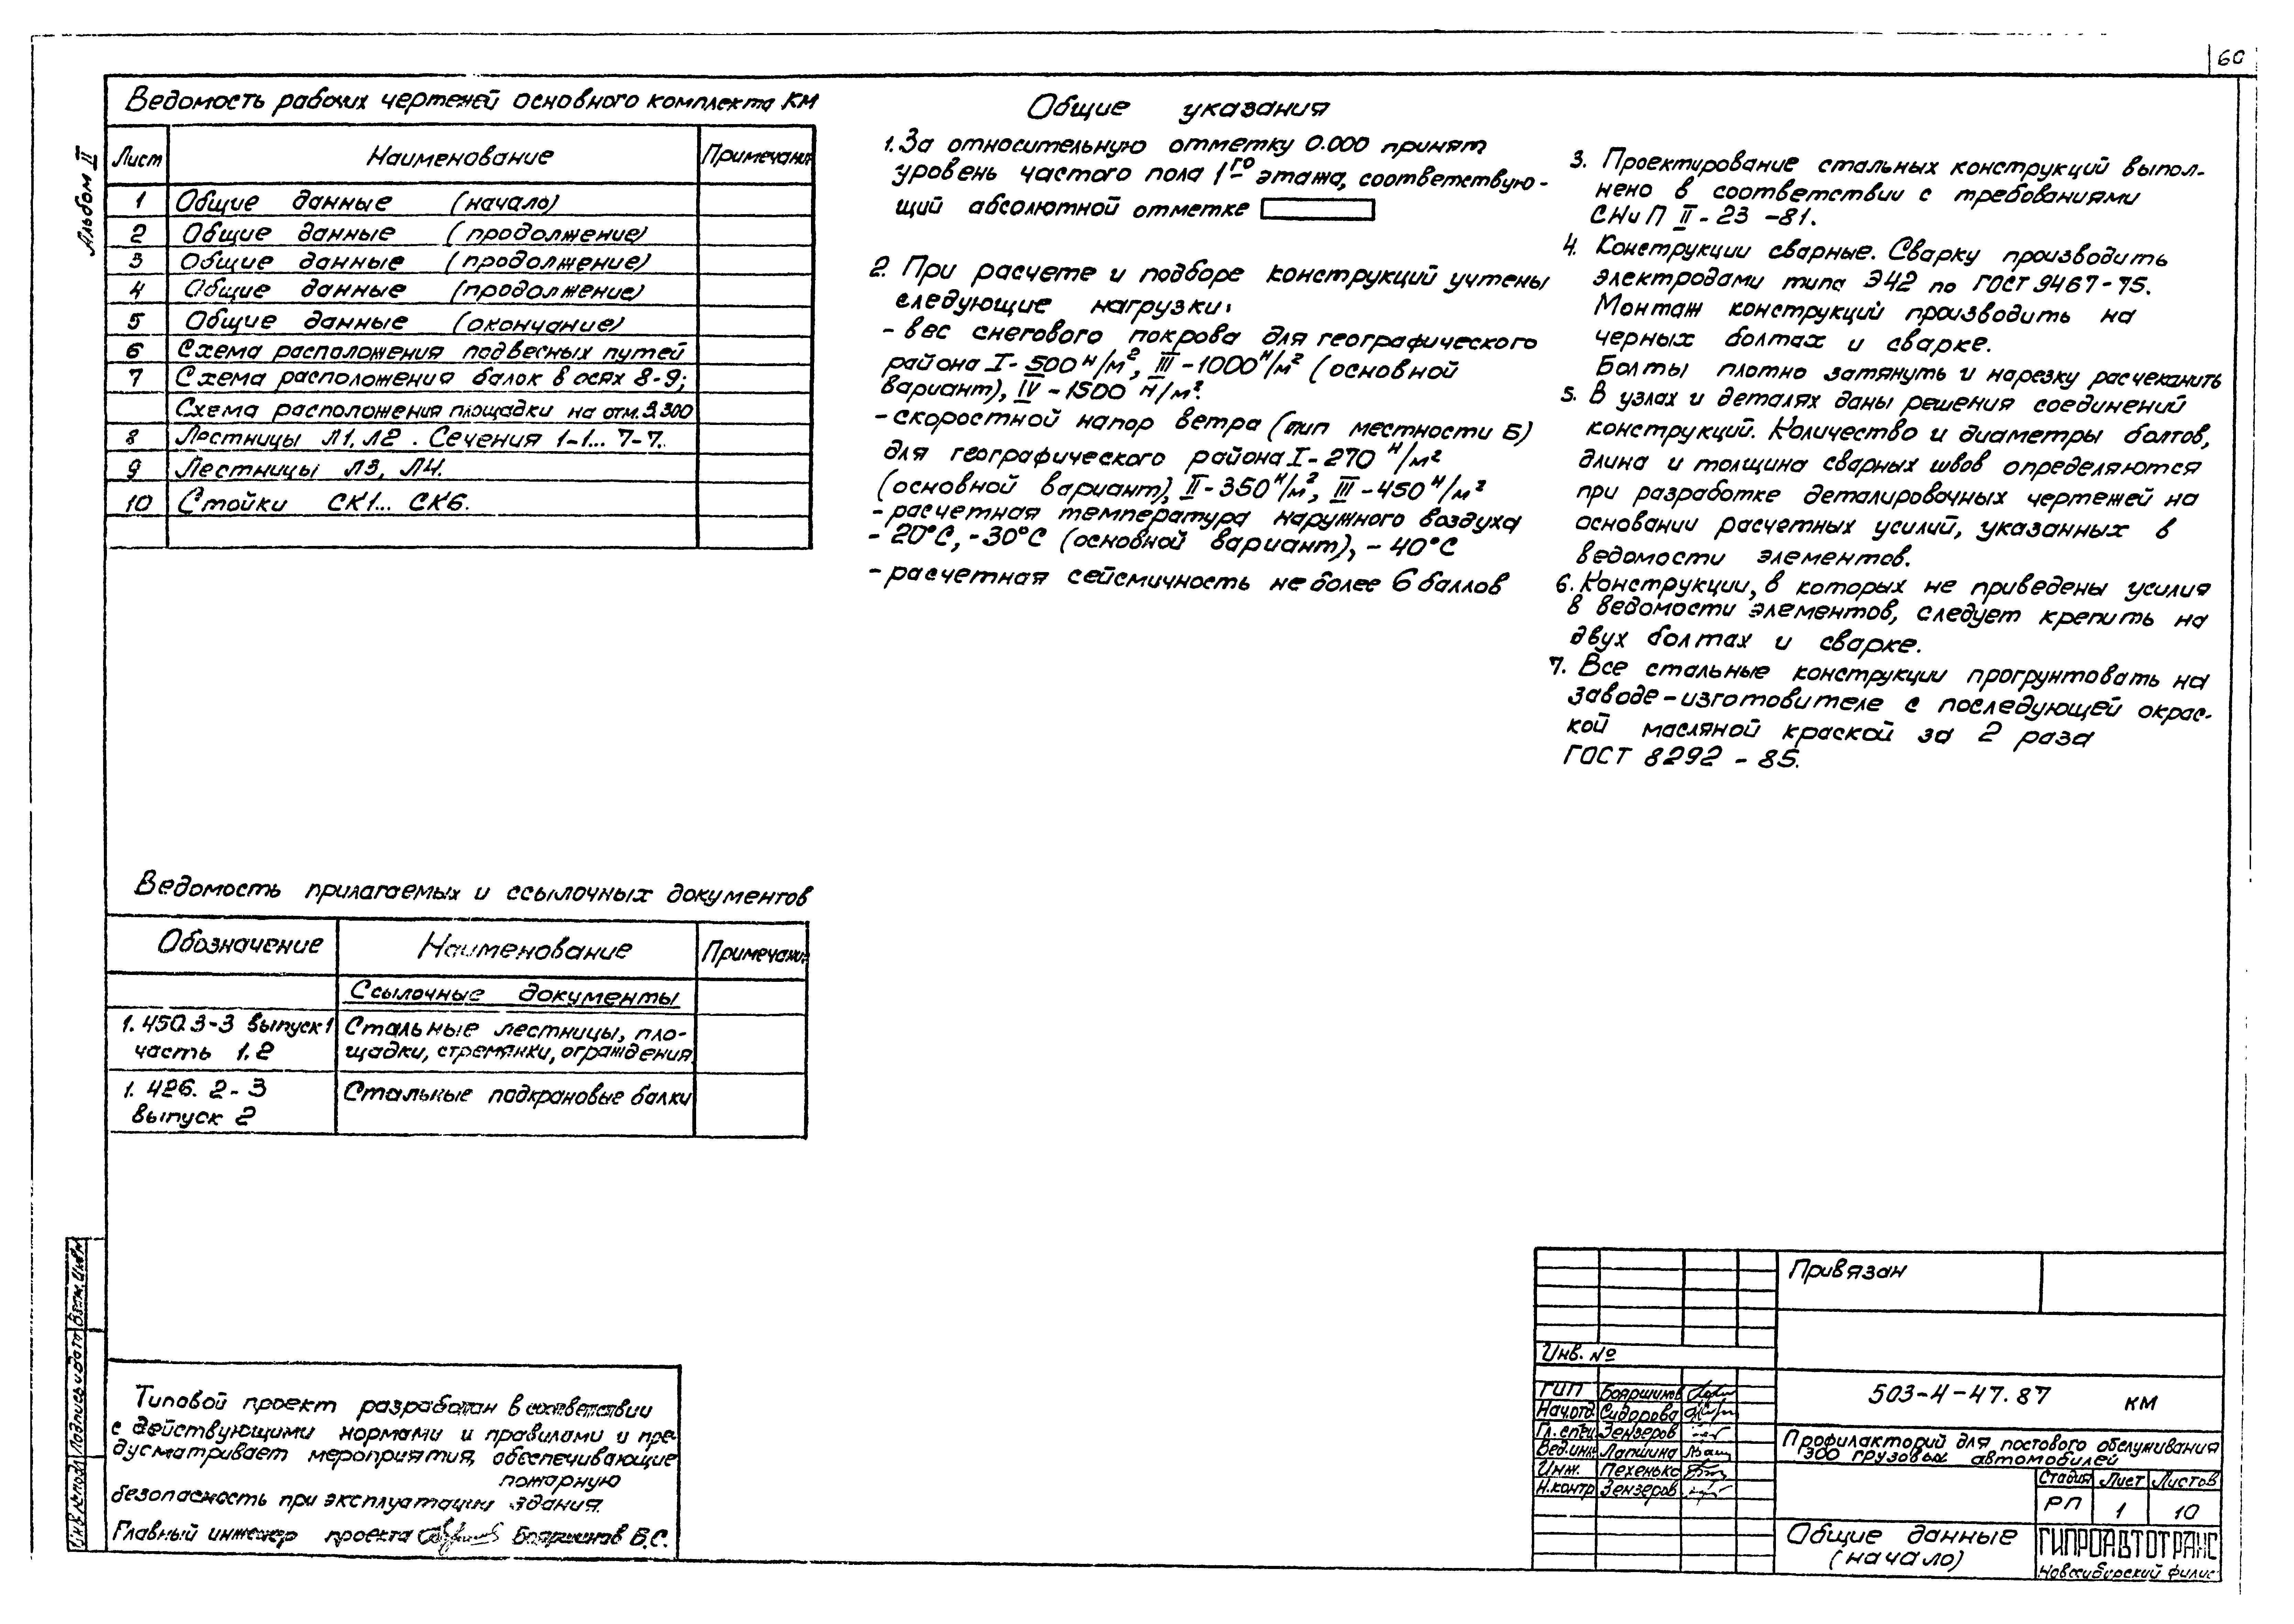 60
Альбом II
Ведомость рабочих чертежей основного комплекта КМ
Лист Наименование Примечани
1 Общие данные (начало)
2 Общие данные (продолжение)
3 Общие данные (продолжение)
4 Общие данные (продолжение)
5 Общие данные (окончание)
6 Схема расположения подвесных путей
7 Схема расположения балок в осях 8-9;
Схема расположения площадки на отм. 3.300
8 Лестницы Л1, Л2. Сечения 1-1... 7-7.
9 Лестницы Л3, Л4.
10 Стойки СК1... СК6.
Ведомость прилагаемых и ссылочных документов
Обозначение Наименование Примечани
Ссылочные документы
1.450.3-3 выпуск 1 Стальные лестницы, пло-
часть 1.2 щадки, стремянки, ограждения
1.426.2-3 Стальные подкрановые балки
выпуск 2
Общие указания
1. За относительную отметку 0.000 принят
уровень частого пола 1го этажа, соответствую-
щий абсолютной отметке
2. При расчете и подборе конструкций учтены
следующие нагрузки:
- вес снегового покрова для географического
района I - 500 н/м², III - 1000 н/м² (основной
вариант), IV - 1500 н/м².
- скоростной напор ветра (тип местности Б)
для географического района I - 270 н/м²
(основной вариант), II - 350 н/м², III - 450 н/м²
- расчетная температура наружного воздуха
- 20°С, -30°С (основной вариант), - 40°С
- расчетная сейсмичность не более 6 баллов
3. Проектирование стальных конструкций выпол-
нено в соответствии с требованиями
СНиП II - 23 - 81.
4. Конструкции сварные. Сварку производить
электродами типа Э42 по ГОСТ 9467-75.
Монтаж конструкций производить на
черных болтах и сварке.
Болты плотно затянуть и нарезку расчеканить
5. В узлах и деталях даны решения соединений
конструкций. Количество и диаметры болтов,
длина и толщина сварных швов определяются
при разработке деталировочных чертежей на
основании расчетных усилий, указанных в
ведомости элементов.
6. Конструкции, в которых не приведены усилия
в ведомости элементов, следует крепить на
двух болтах и сварке.
7. Все стальные конструкции прогрунтовать на
заводе-изготовителе с последующей окрас-
кой масляной краской за 2 раза
ГОСТ 8292 - 85.
Типовой проект разработан в соответствии
с действующими нормами и правилами и пре-
дусматривает мероприятия, обеспечивающие
пожарную
безопасность при эксплуатации здания.
Главный инженер проекта Бояршинов В.С.
Инв. № подл Подпись и дата Взам. Инв. №
Привязан
Инв. №
ГИП Бояршинов
Нач.отд. Сидорова
Гл. спец. Зензеров
Вед.инж. Лапшина
Инж. Пехенько
Н.контр Зензеров
503-4-47.87 КМ
Профилакторий для постового обслуживания
300 грузовых автомобилей
Стадия Лист Листов
РП 1 10
Общие данные
(начало)
ГИПРОАВТОТРАНС
Новосибирский филиа